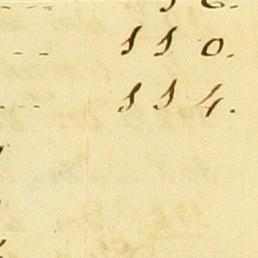 110.
114.